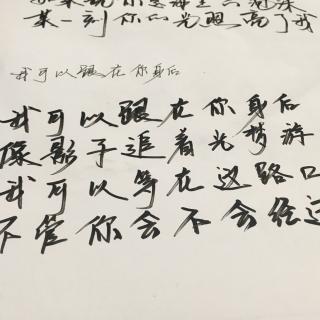 某一刻你的光照亮了我
我可以跟在你身后
我可以跟在你身后
像影子追着光梦游
我可以等在这路口
不管你会不会经过